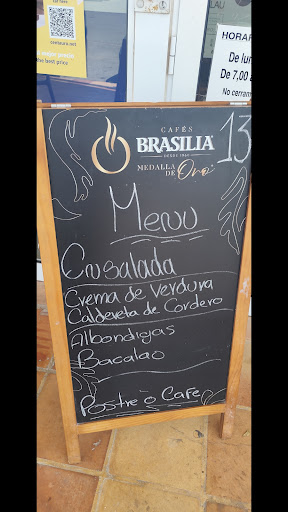 centauro.net
the best price
LAU
HORAR
De lu
De 7,00
No cerram
CAFÉS
BRASILIA
DESDE
MEDALLA
DE Oro
13
Menu
Ensalada
Crema de Verdura
Caldereta de Cordero
Albondigas
Bacalao
Postre ò Cafe